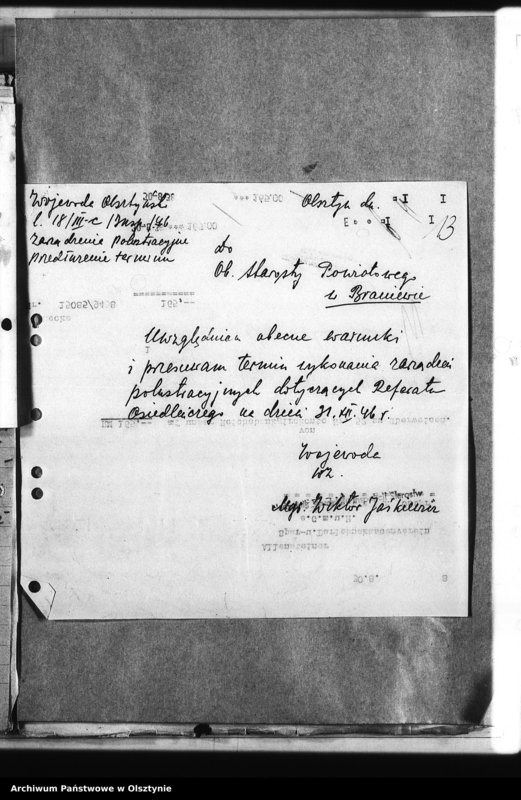 Wojewoda Olsztyński
L. 18/III-c/Insp./46
Zarządzenia polustracyjne
przedłużenie terminu
Olsztyn dn.
13
do
Ob. Starosty Powiatowego
w Braniewie
Uwzględniam obecne warunki
i przesuwam termin wykonania zarządzeń
polustracyjnych dotyczących Referatu
Osiedleńczego na dzień 31.XII.46 r.
Wojewoda
wz.
Mgr. Wiktor Jaśkiewicz
Archiwum Państwowe w Olsztynie